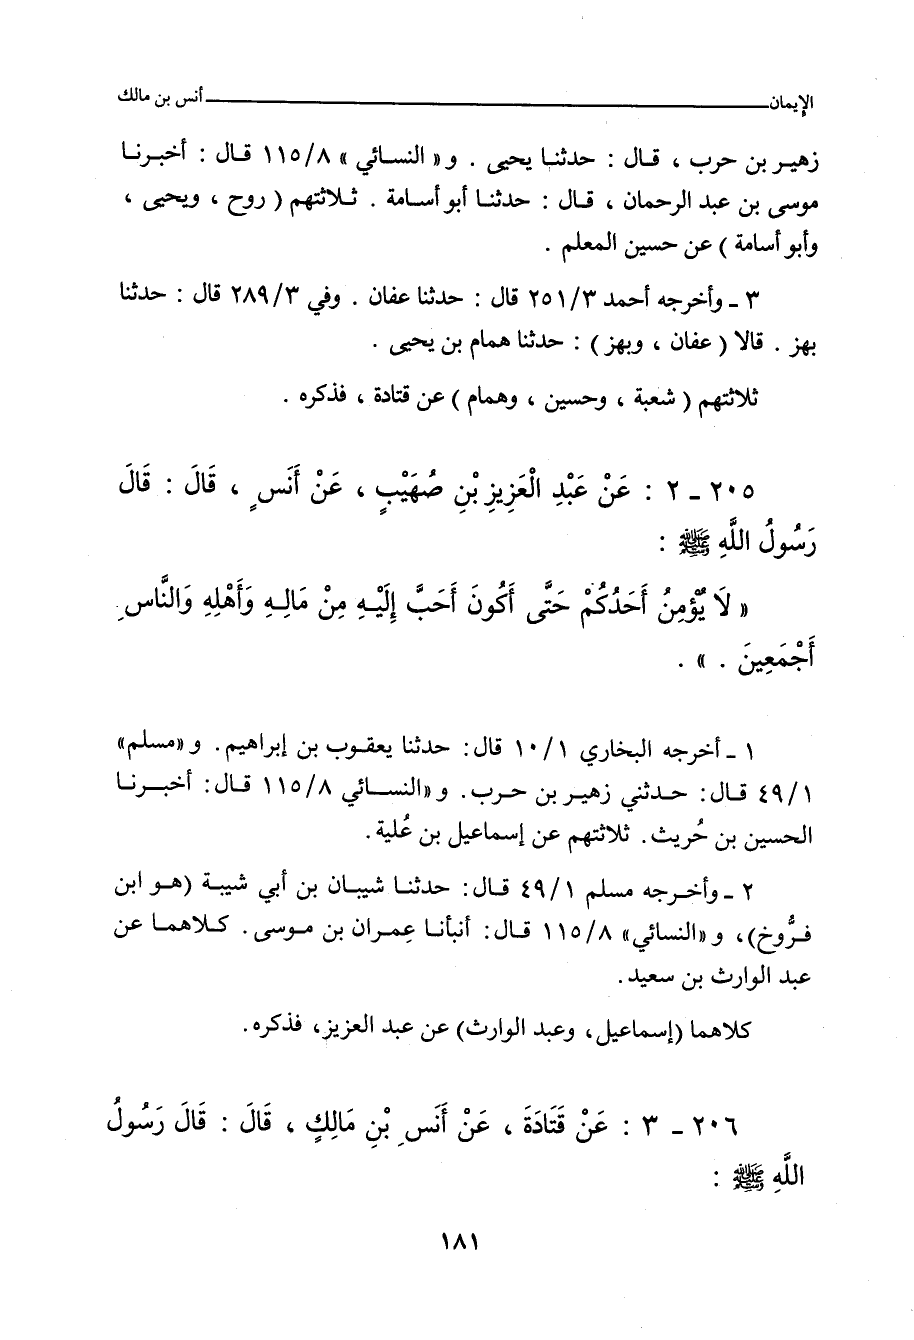 الإيمان ــــــــــ أنس بن مالك
زهير بن حرب ، قال : حدثنا يحيى . و« النسائي » ١١٥/٨ قال : أخبرنا
موسى بن عبد الرحمان ، قال : حدثنا أبو أسامة . ثلاثتهم ( روح ، ويحيى ،
وأبو أسامة ) عن حسين المعلم .
٣ ـ وأخرجه أحمد ٢٥١/٣ قال : حدثنا عفان . وفي ٢٨٩/٣ قال : حدثنا
بهز . قالا ( عفان ، وبهز ) : حدثنا همام بن يحيى .
ثلاثتهم ( شعبة ، وحسين ، وهمام ) عن قتادة ، فذكره .
٢٠٥ ـ ٢ : عَنْ عَبْدِ الْعَزِيزِ بْنِ صُهَيْبٍ ، عَنْ أَنَسٍ ، قَالَ : قَالَ
رَسُولُ اللَّهِ ﷺ :
« لَا يُؤْمِنُ أَحَدُكُمْ حَتَّى أَكُونَ أَحَبَّ إِلَيْهِ مِنْ مَالِهِ وَأَهْلِهِ وَالنَّاسِ
أَجْمَعِينَ . » .
١ ـ أخرجه البخاري ١٠/١ قال: حدثنا يعقوب بن إبراهيم. و «مسلم»
٤٩/١ قال: حدثني زهير بن حرب. و «النسائي ١١٥/٨ قال: أخبرنا
الحسين بن حُريث. ثلاثتهم عن إسماعيل بن عُلية.
٢ ـ وأخرجه مسلم ٤٩/١ قال: حدثنا شيبان بن أبي شيبة (هو ابن
فرُّوخ)، و «النسائي» ١١٥/٨ قال: أنبأنا عِمران بن موسى. كلاهما عن
عبد الوارث بن سعيد.
كلاهما (إسماعيل، وعبد الوارث) عن عبد العزيز، فذكره.
٢٠٦ ـ ٣ : عَنْ قَتَادَةَ ، عَنْ أَنَسِ بْنِ مَالِكٍ ، قَالَ : قَالَ رَسُولُ
اللَّهِ ﷺ :
١٨١